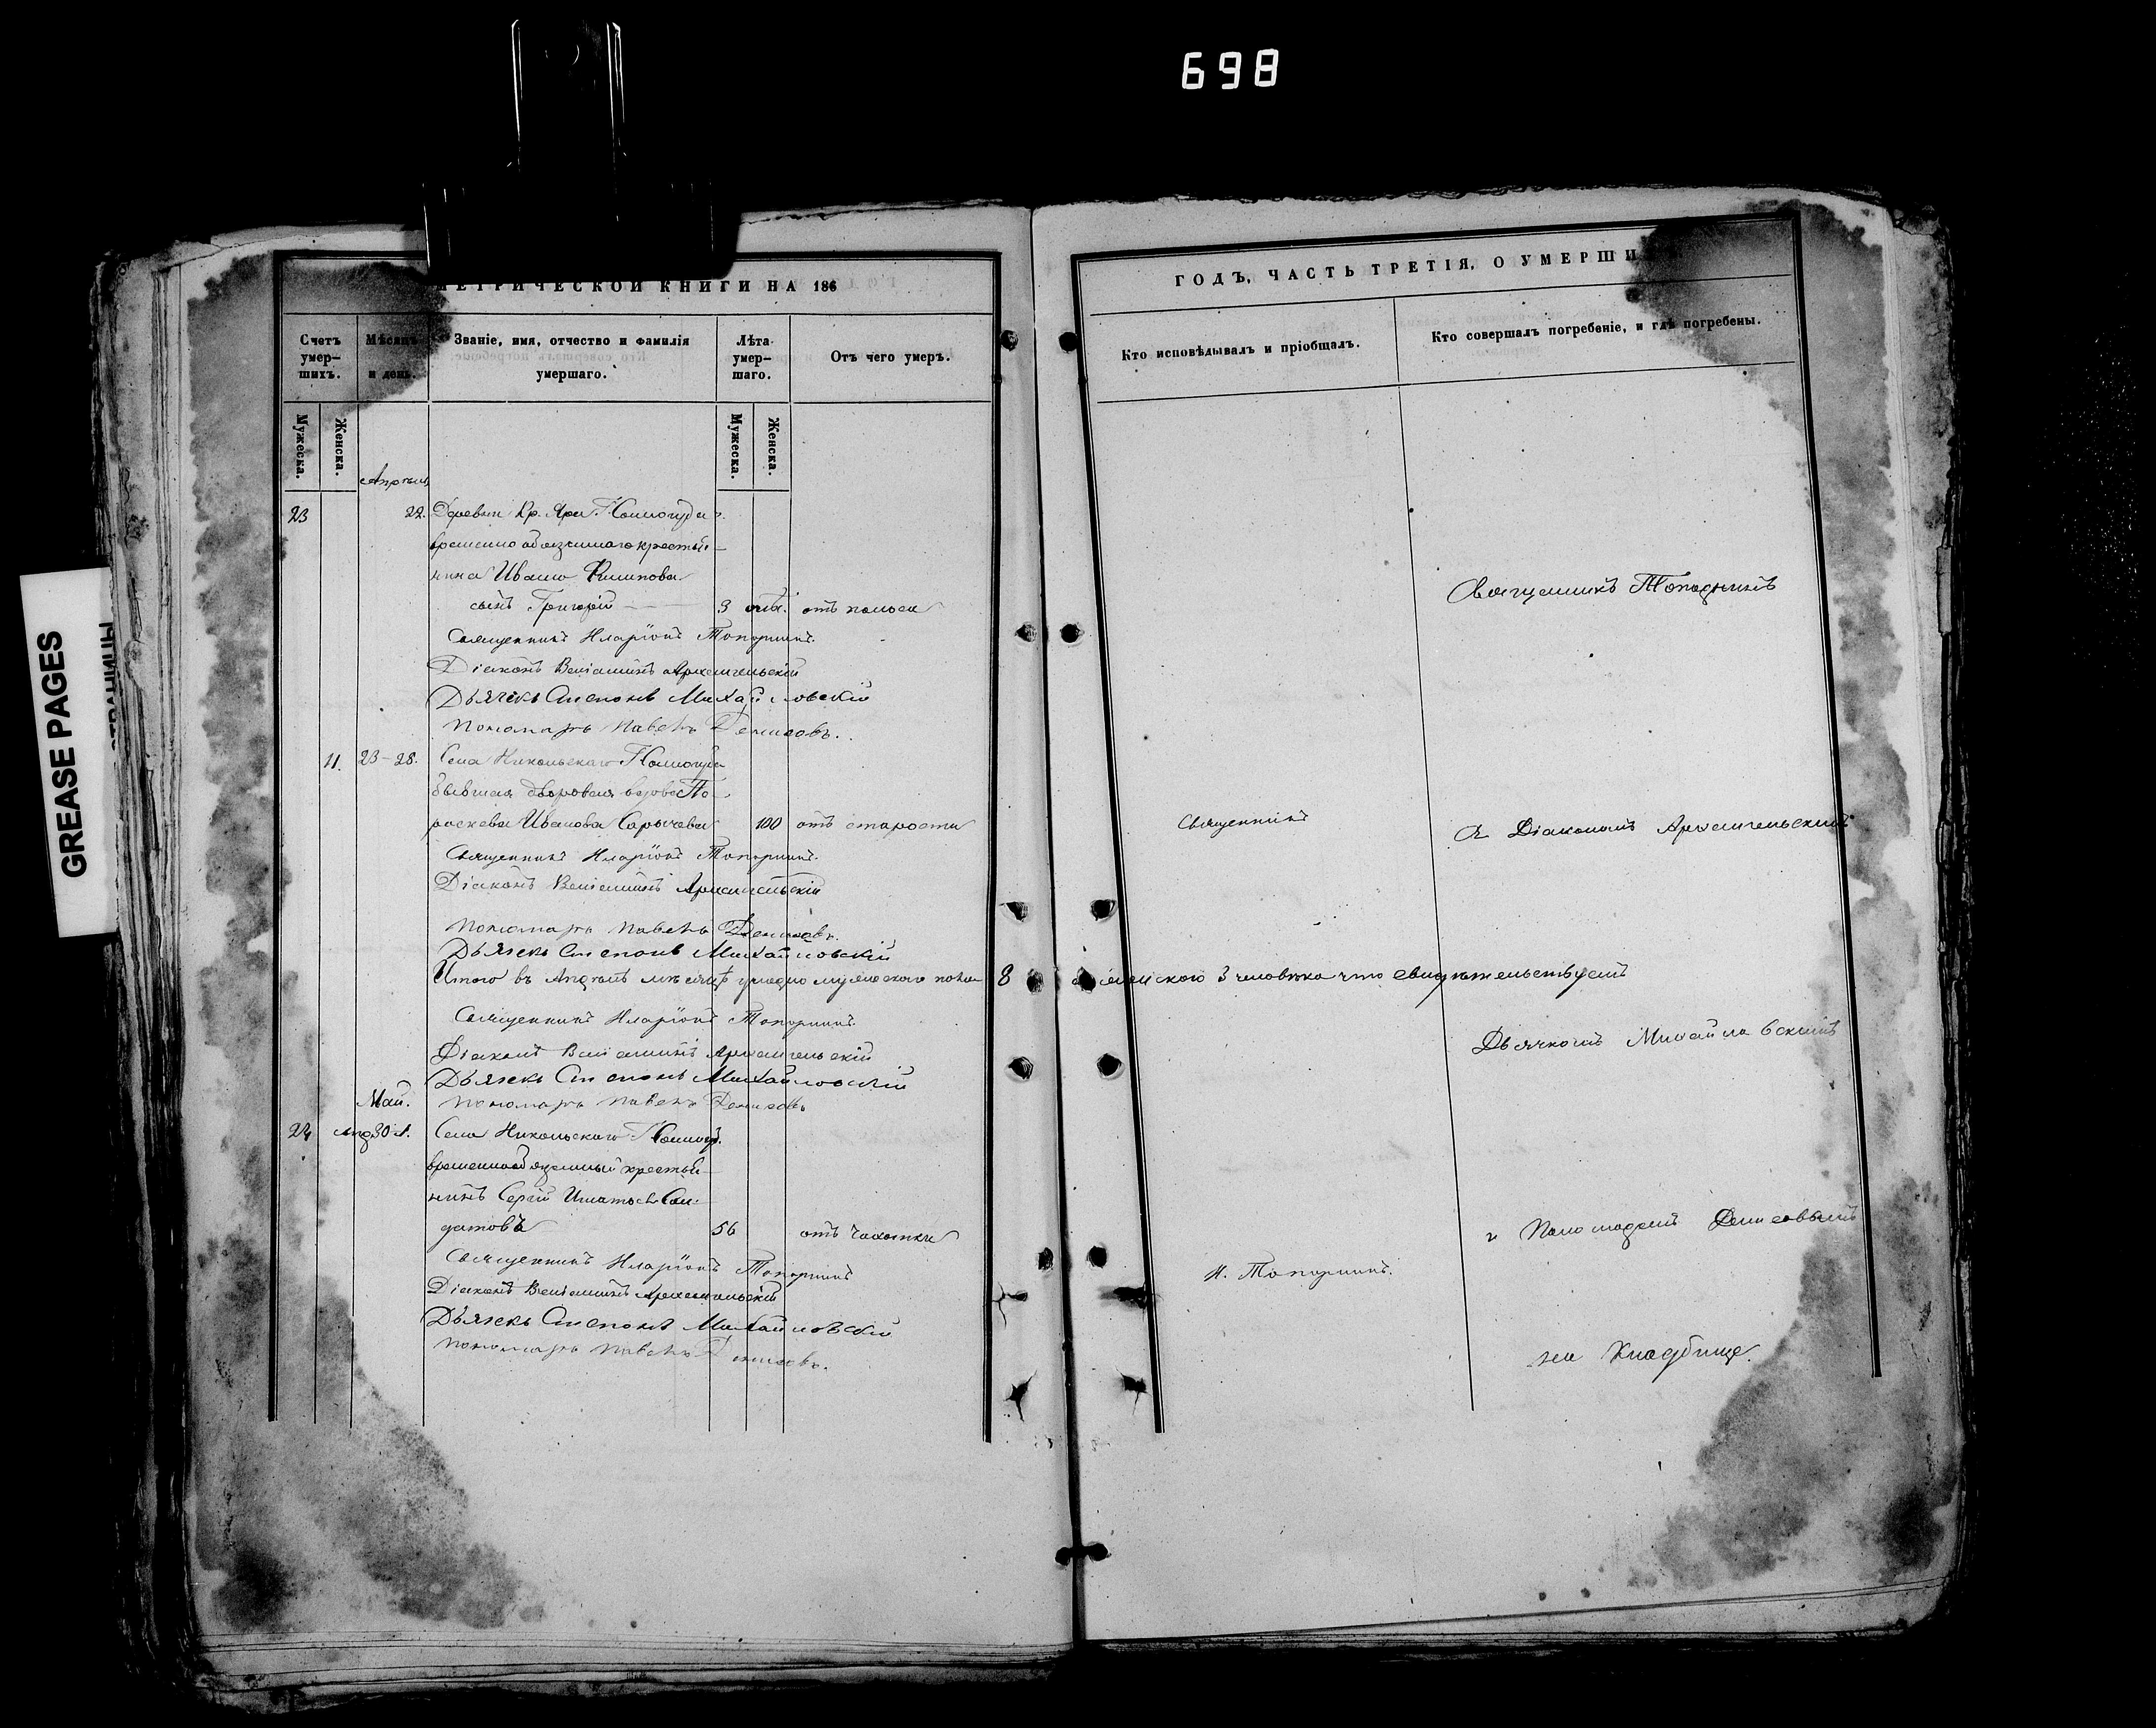 698
GREASE PAGES
МЕТРИЧЕСКОЙ КНИГИ НА 186
Счетъ умер-шихъ.
Мѣсяцъ и день.
Званіе, имя, отчество и фамилія умершаго.
Лѣта умер-шаго.
Отъ чего умеръ.
Мужеска.
Женска.
Мужеска.
Женска.
Апрѣль
23 22. Деревни Кр. Яра
временно обязаннаго крестья-
нина Ивана Филипова
сынъ Григорій 3 отъ поноса
Священникъ Иларіонъ Топорнинъ.
Діаконъ Веніаминъ Архангельскій
Дьячекъ Степанъ Михайловскій
Пономарь Павелъ Денисовъ.
11. 23-28. Села Никольскаго
бывшая дворовая вдова Па-
раскева Иванова Сарычева 100 отъ старости
Священникъ Иларіонъ Топорнинъ.
Діаконъ Веніаминъ Архангельскій
Пономарь Павелъ Денисовъ.
Дьячекъ Степанъ Михайловскій
Итого въ Апрѣлѣ мѣсяцѣ умерло мужескаго пола 8
Священникъ Иларіонъ Топорнинъ.
Діаконъ Веніаминъ Архангельскій
Дьячекъ Степанъ Михайловскій
Май. Пономарь Павелъ Денисовъ
24 Апр 30 1. Села Никольскаго
временнообязанный крестья-
нинъ Сергій Игнатьевъ Сол-
датовъ 56 отъ чахотки
Священникъ Иларіонъ Топорнинъ
Діаконъ Веніаминъ Архангельскій
Дьячекъ Степанъ Михайловскій
Пономарь Павелъ Денисовъ.
ГОДЪ, ЧАСТЬ ТРЕТІЯ, О УМЕРШИ
Кто исповѣдывалъ и пріобщалъ.
Кто совершалъ погребеніе, и гдѣ погребены.
Священникъ Топорнинъ
Священникъ
съ Діакономъ Архангельскимъ
женскаго 3 человѣка что свидѣтельствуемъ
Дьячкомъ Михайловскимъ
и Пономаремъ Денисовымъ
И. Топорнинъ.
на Кладбище.